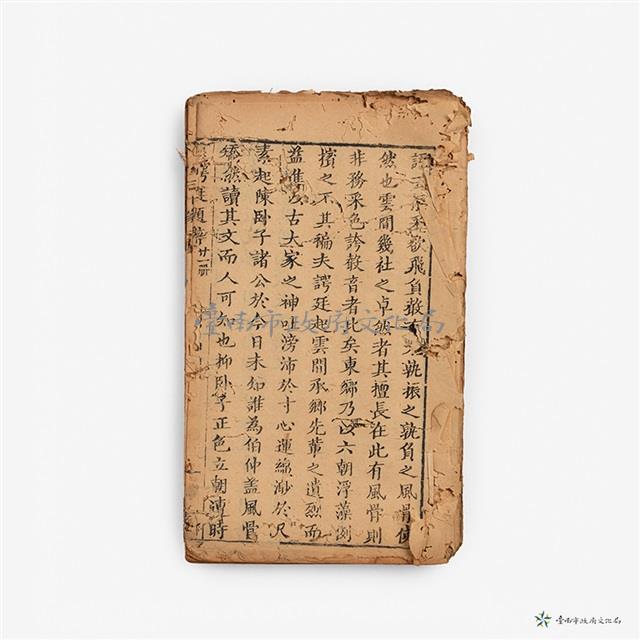 欲飛負孰振之孰負之風骨使
然也雲間幾社之卓然者其擅長在此有風骨則
非務采色誇聲音者比矣東鄉乃以六朝浮藻倒
擯之不其褊夫諤廷起雲間承鄉先輩之遺烈而
益進以古大家之神味滂沛於寸心運緜渺於尺
素起陳卧子諸公於日未知誰為伯仲蓋風骨
矯然讀其文而人可也抑卧子正色立朝時
諤廷類藁
廿一册
臺南市政府文化局
臺南市政府文化局